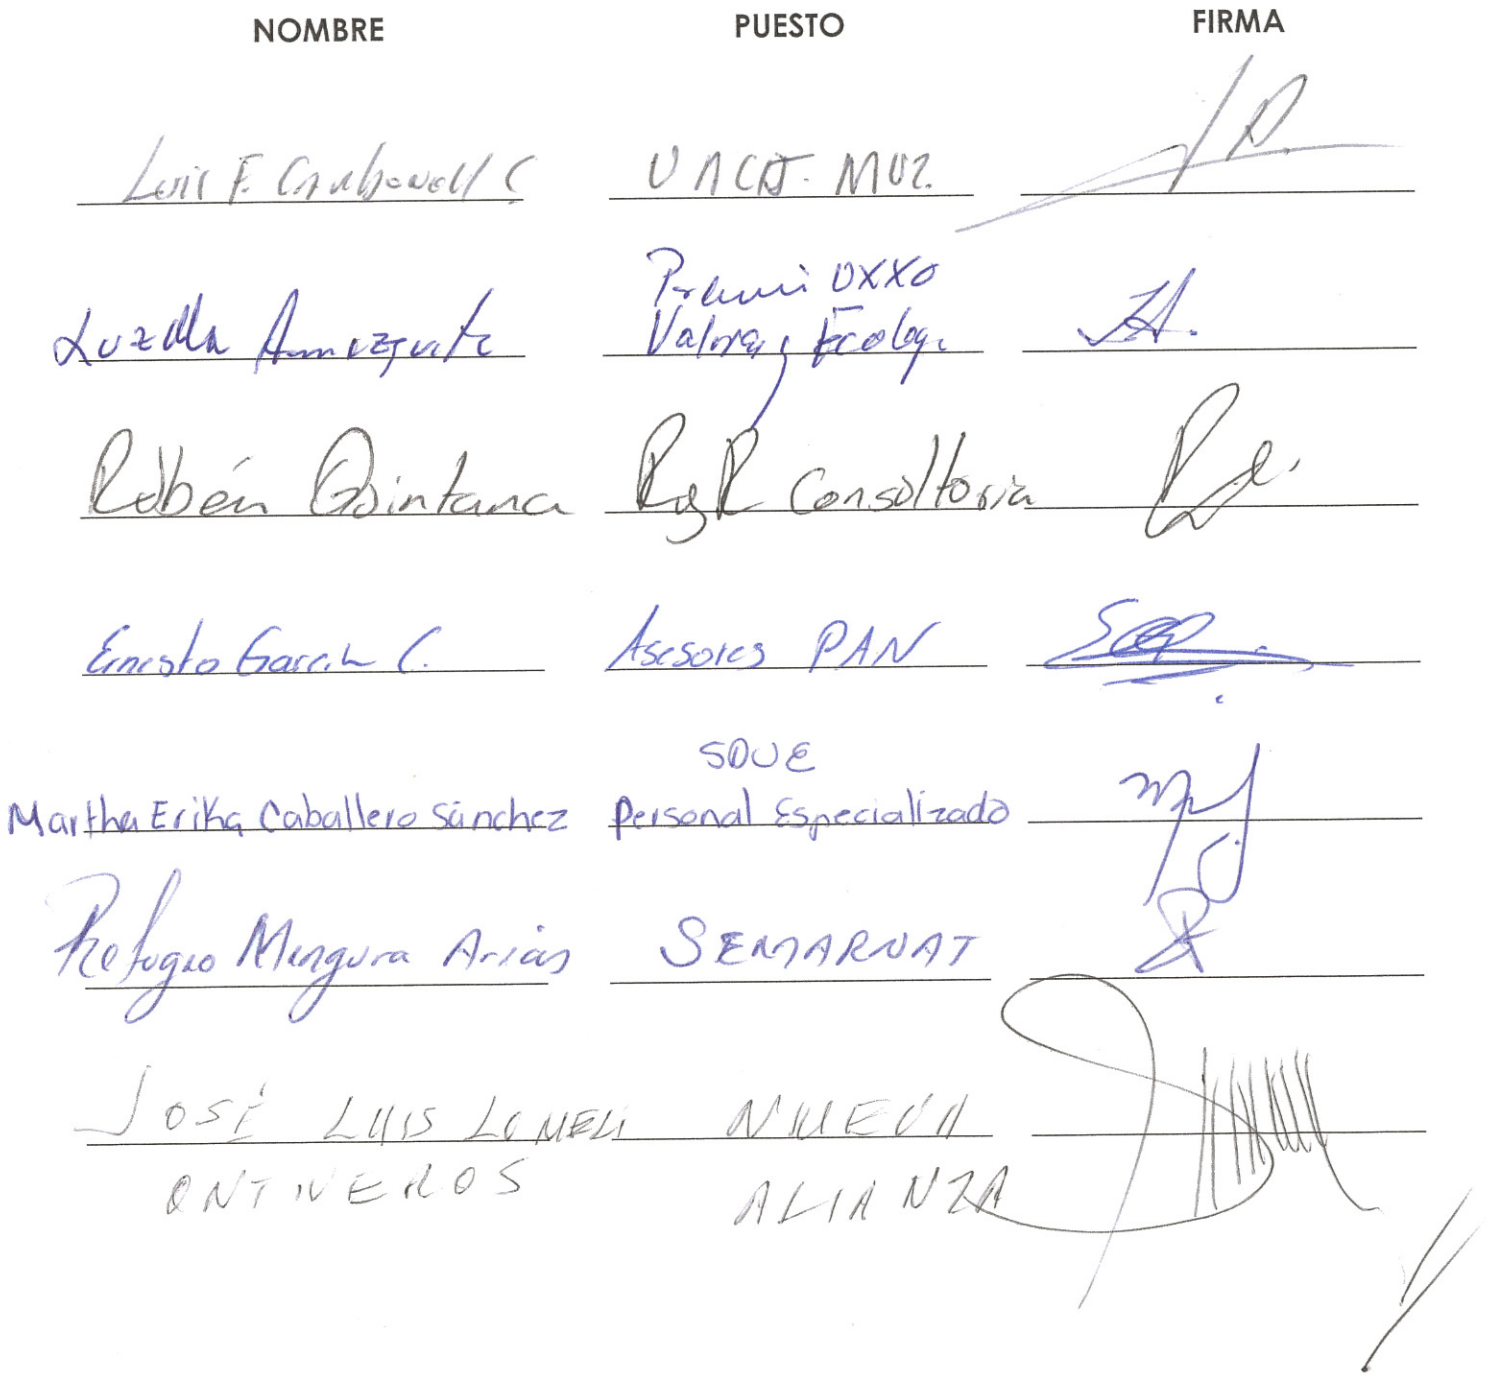 NOMBRE PUESTO FIRMA
Luis F. Carbonell C
Premi OXXO
Luzella Amezquita Valores y Ecolog.
Rubén Quintana RyR Consultoria
Ernesto García C. Asesores PAN
SDUE
Martha Erika Caballero Sánchez Personal Especializado
Refugio Mengura Arias SEMARNAT
JOSÉ LUIS LOMELI NUEVA
ONTIVEROS ALIANZA